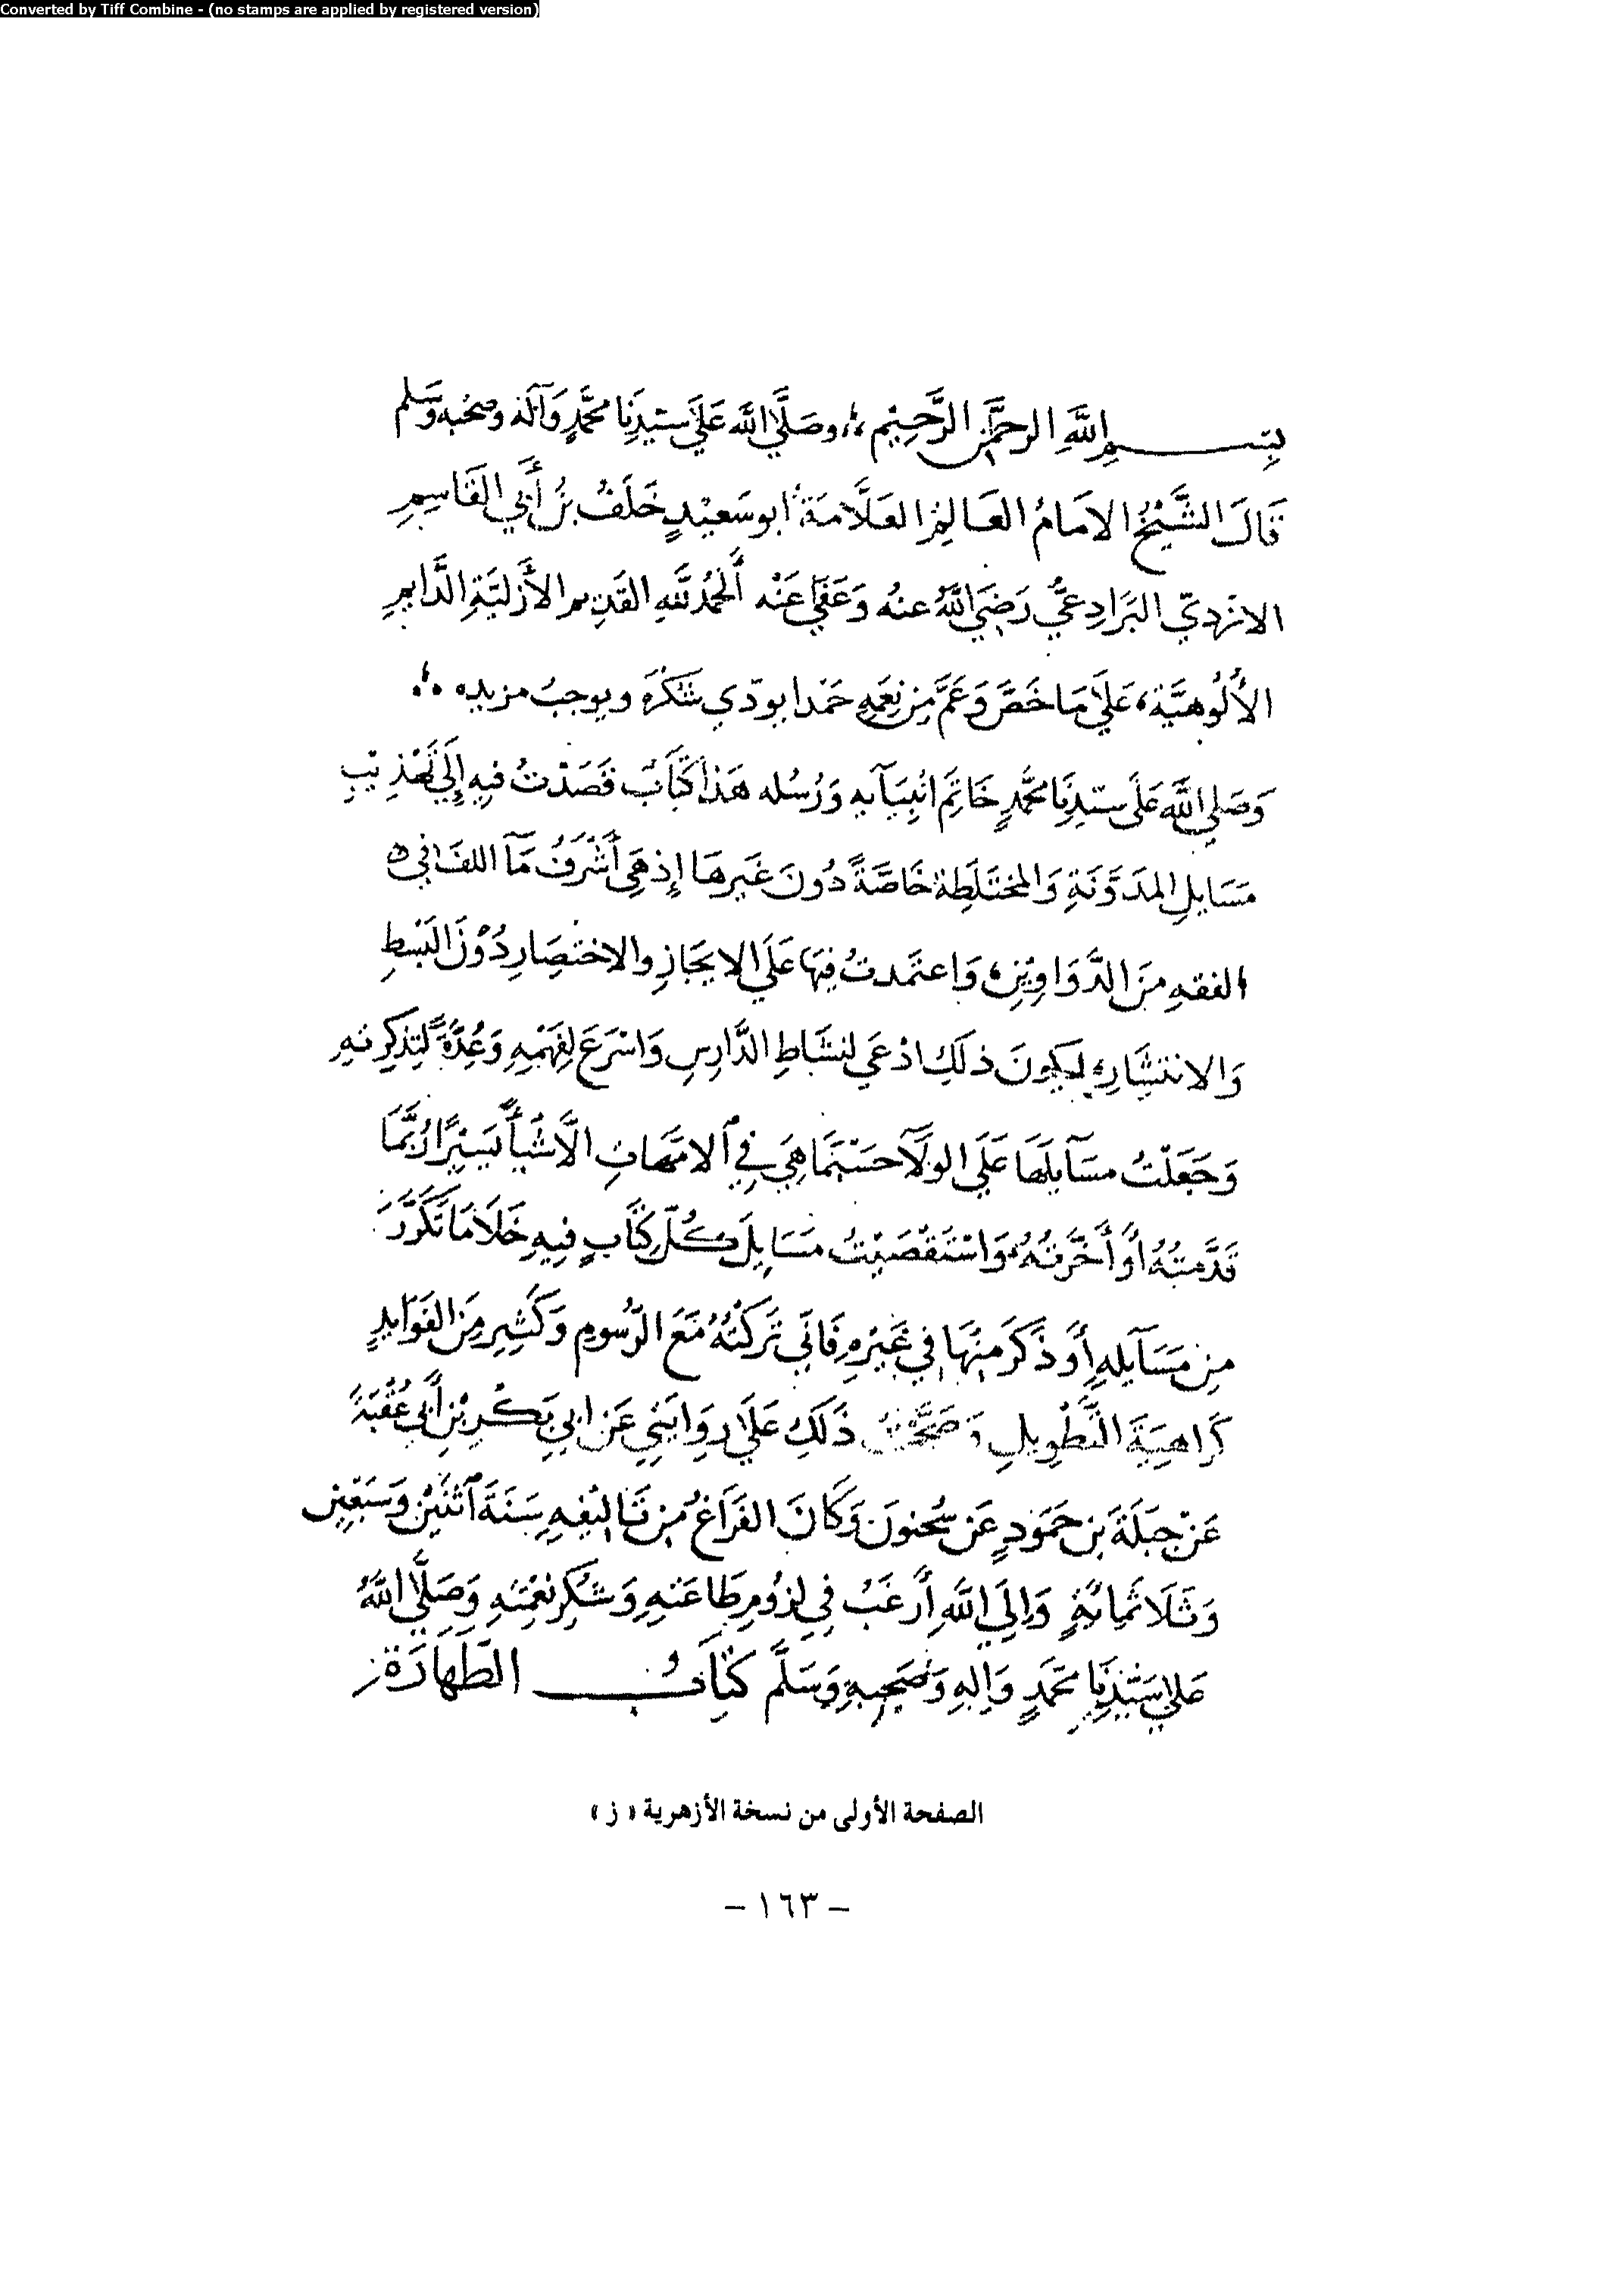 Converted by Tiff Combine - (no stamps are applied by registered version)
بِسم اللَّهِ الرحمَن الرَّحِيْم وصَلَّي اللَّه عَلَي سَيّدِنَا محمَّدٍ وَآلهِ وصَحْبه وَسَلم
قَالَ الشَّيْخُ الامَامُ العَالِمُ العَلَّامَةُ ابو سَعيْدٍ خَلَفُ بنُ أَبِي القَاسِمِ
الازدِيّ البَرَادِعِيُّ رَضِيَ اللَّهُ عنهُ وَعَفَى عَنْه أَلحَمْدُ للَّهِ القَدِيم الأَزَليَّةِ الدَّايمِ
الأُلُوهيَّةِ، عَلَي مَا خَصَّ وَعَمَّ مِن نِعَمِهِ حَمْدا يودّي شكرَهُ ويوجبُ مزيده
وَصَلي اللَّه عَلَي سَيّدِنَا محمَّدٍ خَاتِم انْبِيَآيه وَرُسُله هَذا كِتَابٌ قَصَدْتُ فيهِ إِلَي تَهْذِيْبِ
مَسَايلِ المدَوَّنَةِ وَالمختَلَطِة خَاصَّةً دُونَ غَيرهَا إِذ هِيَ أَشْرَفُ مَآ الف في
الفقهِ مِنَ الدَّوَاوِيْنِ، وَاعتمَدتُ فيهَا عَلَي الايجَازِ والاختصَارِ دُوْنَ البَسْطِ
وَالانتشَارِ، ليكونَ ذلكَ ادْعَي لنشَاطِ الدَّارِسِ وَاسْرَعَ لِفَهْمِهِ وَعُدَّةً لِتذكِرتهِ
وَجَعَلْتُ مسَآيلَهَا عَلَي الولَآ حَسْبَمَا هِيَ فِي الامّهَاتِ الَّا شَيْأً يَسِيْرًا رُبَّمَا
قَدَّمتُهُ أوْ أَخَّرتُهُ، وَاسْتَقْصَيْتُ مَسَايِلَ كُلّ كِتَابٍ فيهِ خَلَا مَا تَكَرَّرَ
مِن مَسَآيلهِ أَوْ ذَكَرَ مِنْهَا فِي غَيْرهِ فَانّي تَرَكْتُهُ مَعَ الرّسُومِ وَكَثِيرٍ مِنَ الفَوَايدِ
كَرَاهيَةَ التَّطْوِيلِ وَصَحَّحْتُ ذَلكَ عَلَي رِوَايَتِي عَن ابِي بَكْرِ بْنِ أَبِي عُقْبَةَ
عَنْ جبَلَةَ بن حمَودٍ عَن سُحنونَ وَكَانَ الفَرَاغُ مِن تَالِيْفِهِ سَنَةَ اثْنَيْنِ وَسَبْعِيْنَ
وَثَلَاثمِايةٍ وَإِلَي اللَّهِ أَرْغَبُ فِي لزُومِ طَاعَتِهِ وَشُكرِ نعْمَتِهِ وَصَلَّي اللَّهُ
عَلي سَيّدِنَا محَمَدٍ وَآلهِ وَصَحبِهِ وَسَلَّم كتَابُ الطَّهَارَةِ
الصفحة الأولى من نسخة الأزهرية « ز »
– ١٦٣ –